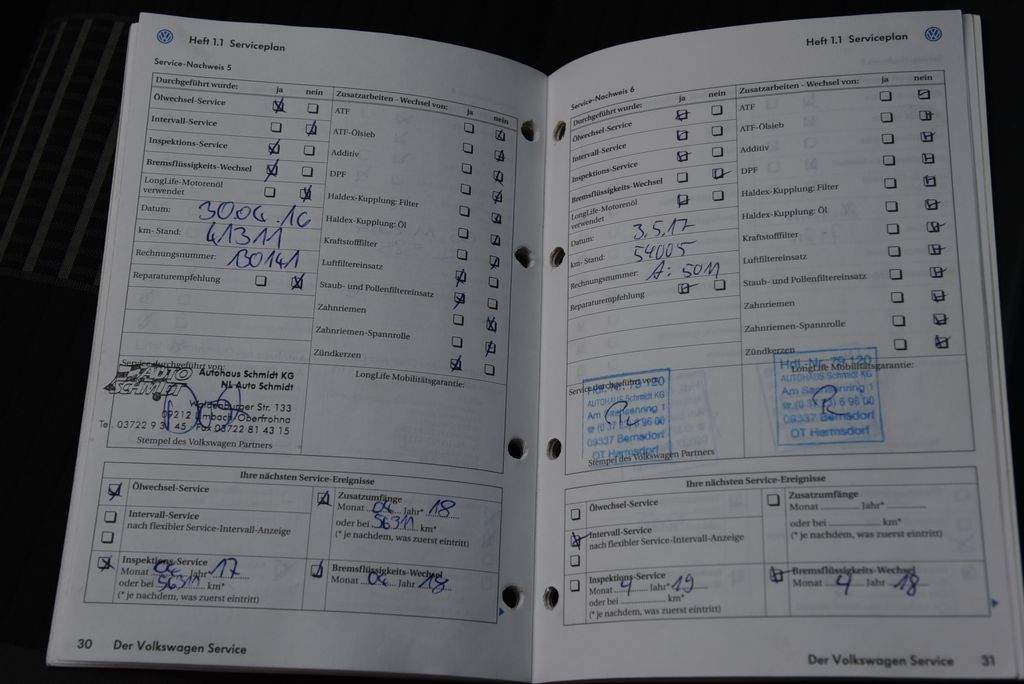 Heft 1.1 Serviceplan
Service-Nachweis 5
Durchgeführt wurde: ja nein
Ölwechsel-Service
Intervall-Service
Inspektions-Service
Bremsflüssigkeits-Wechsel
LongLife-Motorenöl
verwendet
Datum: 30.04.16
km-Stand: 41311
Rechnungsnummer: 130141
Reparaturempfehlung
Zusatzarbeiten - Wechsel von: ja nein
ATF
ATF-Ölsieb
Additiv
DPF
Haldex-Kupplung: Filter
Haldex-Kupplung: Öl
Kraftstofffilter
Luftfiltereinsatz
Staub- und Pollenfiltereinsatz
Zahnriemen
Zahnriemen-Spannrolle
Zündkerzen
Service durchgeführt von:
AUTO SCHMIDT
Autohaus Schmidt KG
NL Auto Schmidt
Waldenburger Str. 133
09212 Limbach-Oberfrohna
Fax 03722 81 43 15
Stempel des Volkswagen Partners
LongLife Mobilitätsgarantie:
Ihre nächsten Service-Ereignisse
Ölwechsel-Service
Intervall-Service
nach flexibler Service-Intervall-Anzeige
Inspektions-Service
Monat 04 Jahr* 17
oder bei 56311 km*
(* je nachdem, was zuerst eintritt)
Zusatzumfänge
Monat 04 Jahr* 18
oder bei 56311 km*
(* je nachdem, was zuerst eintritt)
Bremsflüssigkeits-Wechsel
Monat 04 Jahr 18
30 Der Volkswagen Service
Heft 1.1 Serviceplan
Service-Nachweis 6
Durchgeführt wurde: ja nein
Ölwechsel-Service
Intervall-Service
Inspektions-Service
Bremsflüssigkeits-Wechsel
LongLife-Motorenöl
verwendet
Datum: 3.5.17
km-Stand: 54005
Rechnungsnummer: A: 5011
Reparaturempfehlung
Zusatzarbeiten - Wechsel von: ja nein
ATF
ATF-Ölsieb
Additiv
DPF
Haldex-Kupplung: Filter
Haldex-Kupplung: Öl
Kraftstofffilter
Luftfiltereinsatz
Staub- und Pollenfiltereinsatz
Zahnriemen
Zahnriemen-Spannrolle
Zündkerzen
Service durchgeführt von:
Hdl.-Nr. 79 120
AUTOHAUS Schmidt KG
09337 Bernsdorf
OT Hermsdorf
Stempel des Volkswagen Partners
LongLife Mobilitätsgarantie:
Hdl.-Nr. 79 120
AUTOHAUS Schmidt KG
Am Sachsenring 1
09337 Bernsdorf
OT Hermsdorf
Ihre nächsten Service-Ereignisse
Ölwechsel-Service
Intervall-Service
nach flexibler Service-Intervall-Anzeige
Inspektions-Service
Monat 4 Jahr* 19
oder bei km*
(* je nachdem, was zuerst eintritt)
Zusatzumfänge
Monat Jahr*
oder bei km*
(* je nachdem, was zuerst eintritt)
Bremsflüssigkeits-Wechsel
Monat 4 Jahr 18
Der Volkswagen Service 31